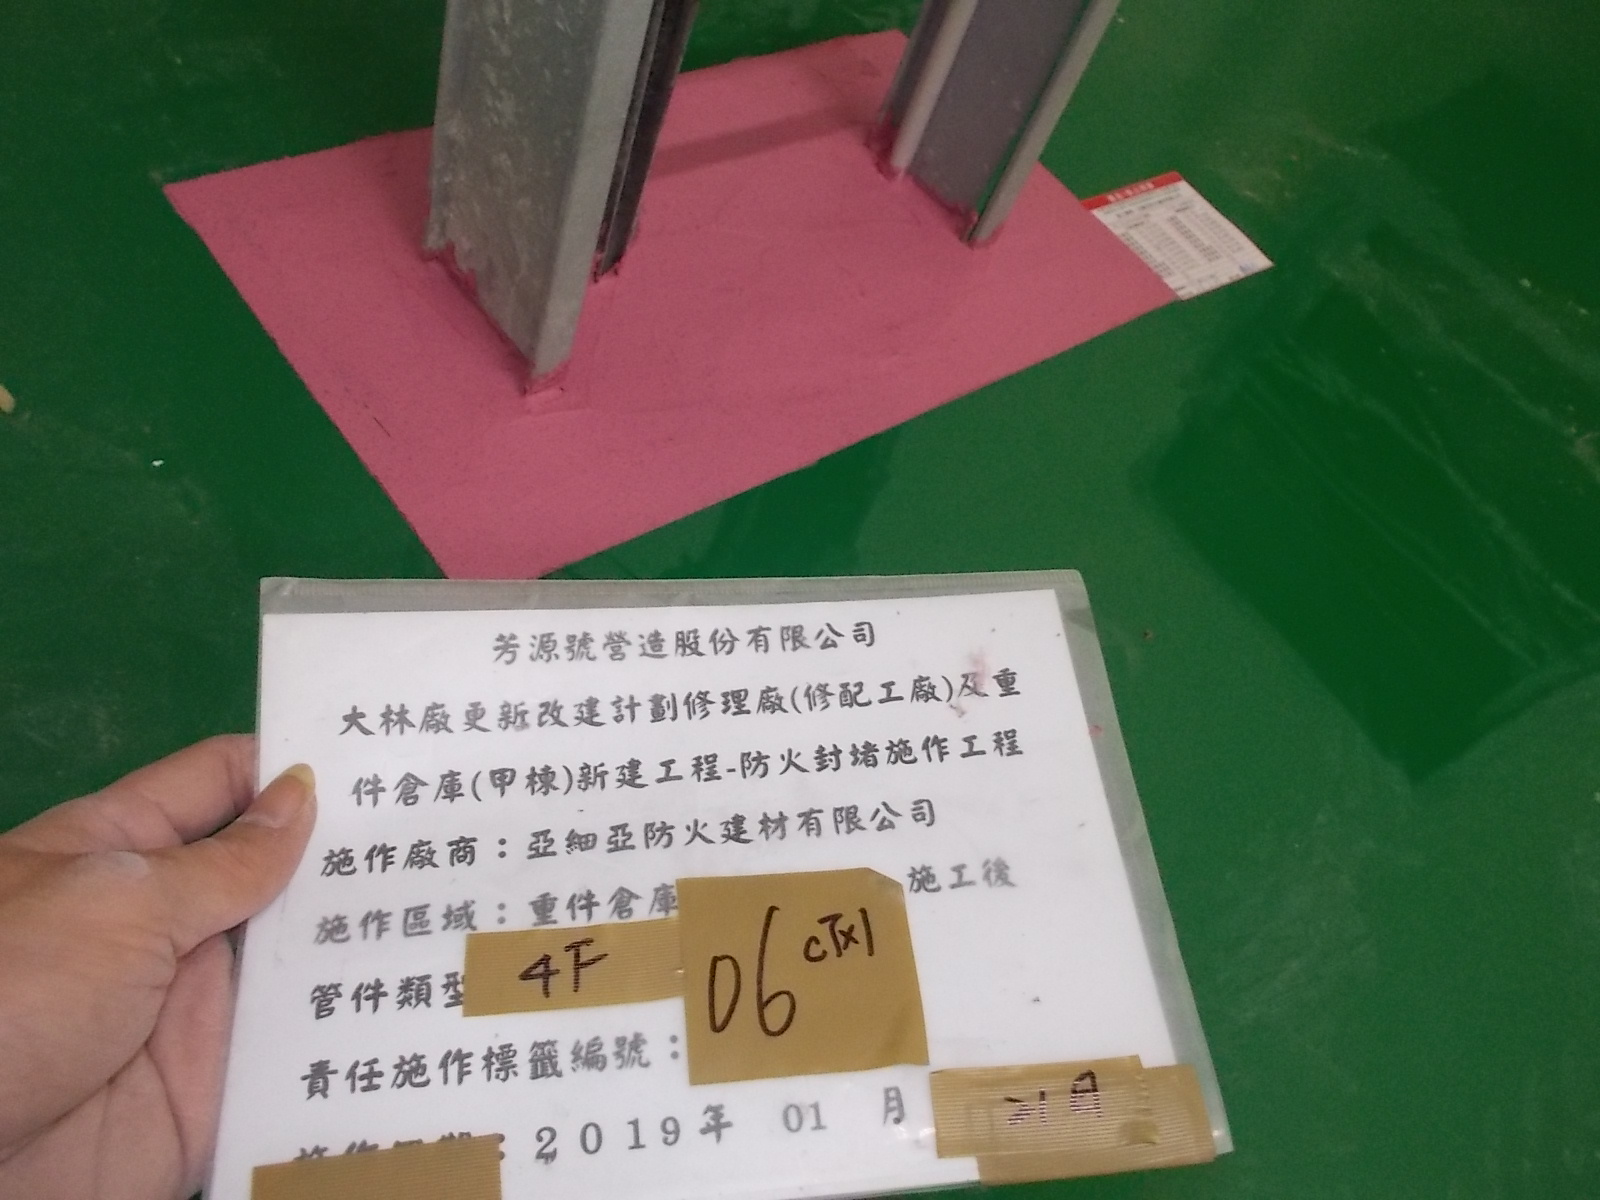 芳源號營造股份有限公司
大林廠更新改建計劃修理廠(修配工廠)及重
件倉庫(甲棟)新建工程-防火封堵施作工程
施作廠商：亞細亞防火建材有限公司
施作區域：重件倉庫 施工後
管件類型 4F
06 CTx1
責任施作標籤編號：
：2019年 01 月 21日